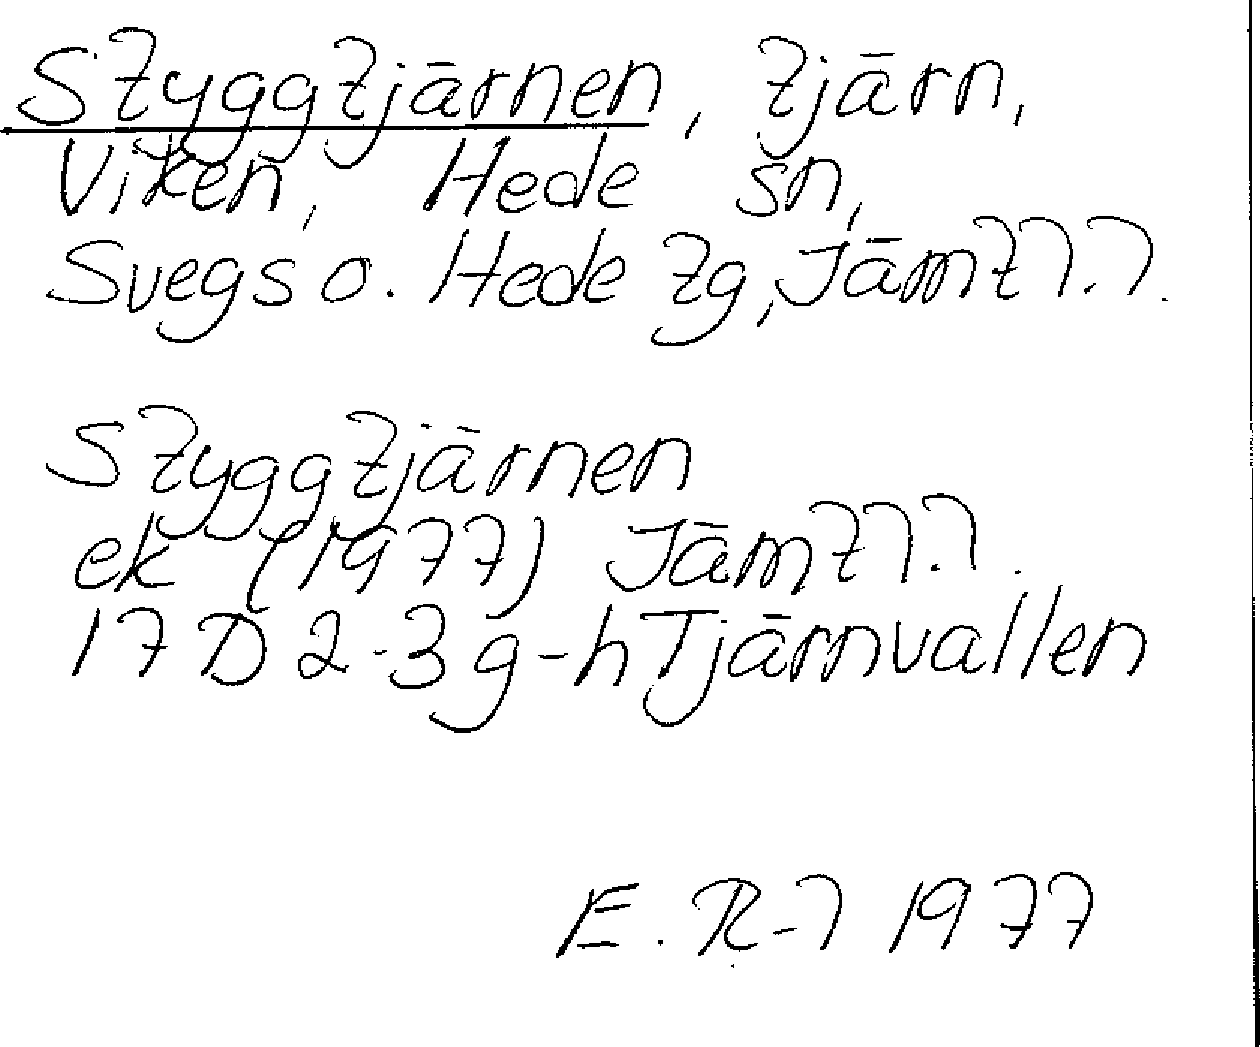 Styggtjärnen, tjärn,
Viken, Hede sn,
Svegs o. Hede tg, Jämtl.l.
Styggtjärnen
ek (1977) Jämtl.l.
17D 2-3 g-h Tjärnvallen
E. R-l 1977